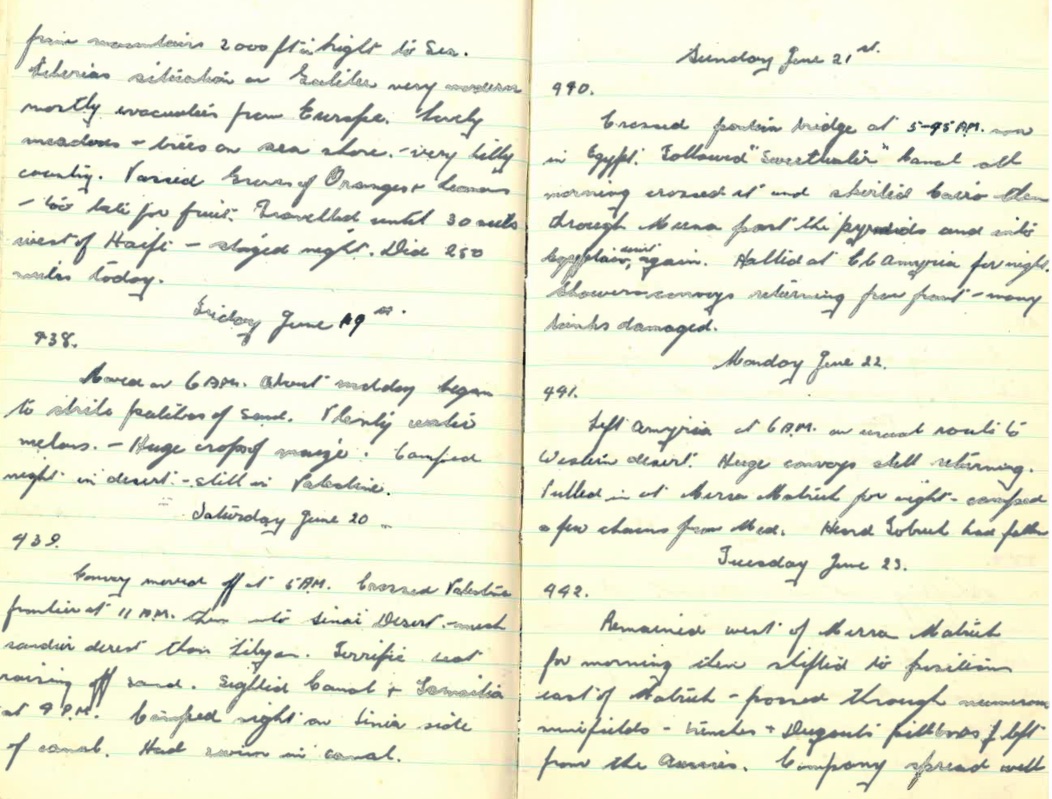 from mountains 2000 ft in hight to Sea.
Tiberias situation on Galilee very modern
mostly evacuaties from Europe. Lovely
meadows - trees on sea shore. - very hilly
country. Passed Groves of Oranges + Lemons
- too late for fruit. Travelled until 30 miles
west of Haifi - stayed night. Did 250
miles today.
Friday June 19th.
438.
Moved on 6 A.M. About midday began
to strike patches of sand. Plenty water
melons. - Huge crops of maize. Camped
night in desert. - still in Palestine.
Saturday June 20
439.
Convoy moved off at 5 A.M. Crossed Palestine
frontier at 11 A.M. then into Sinai Desert. - much
sandier desert than Libyan. Terrific heat
raising off sand. Sighted Canal + Ismailia
at 4 P.M. Camped night on Sinia side
of canal. Had swim in canal.
Sunday June 21st.
440.
Crossed pontoin bridge at 5-45 A.M. now
in Egypt. Followed "Sweetwater" Canal all
morning crossed it and skirted Cairo then
through Meena past the pyramids and into
again. Halted at El Amyria for night.
convoys returning from front - many
tanks damaged.
Monday June 22.
441.
Left Amyria at 6 A.M. on usual route to
Western desert. Huge convoys still returning.
Pulled in at Mersa Matruh for night - camped
a few chains from Med. Heard Tobruk had fallen
Tuesday June 23.
442.
Remained west of Mersa Matruh
for morning then shifted to positions
east of Matruh - passed through numerous
minefields - trenches + Dugouts pillboxes left
from the Aussies. Company spread well